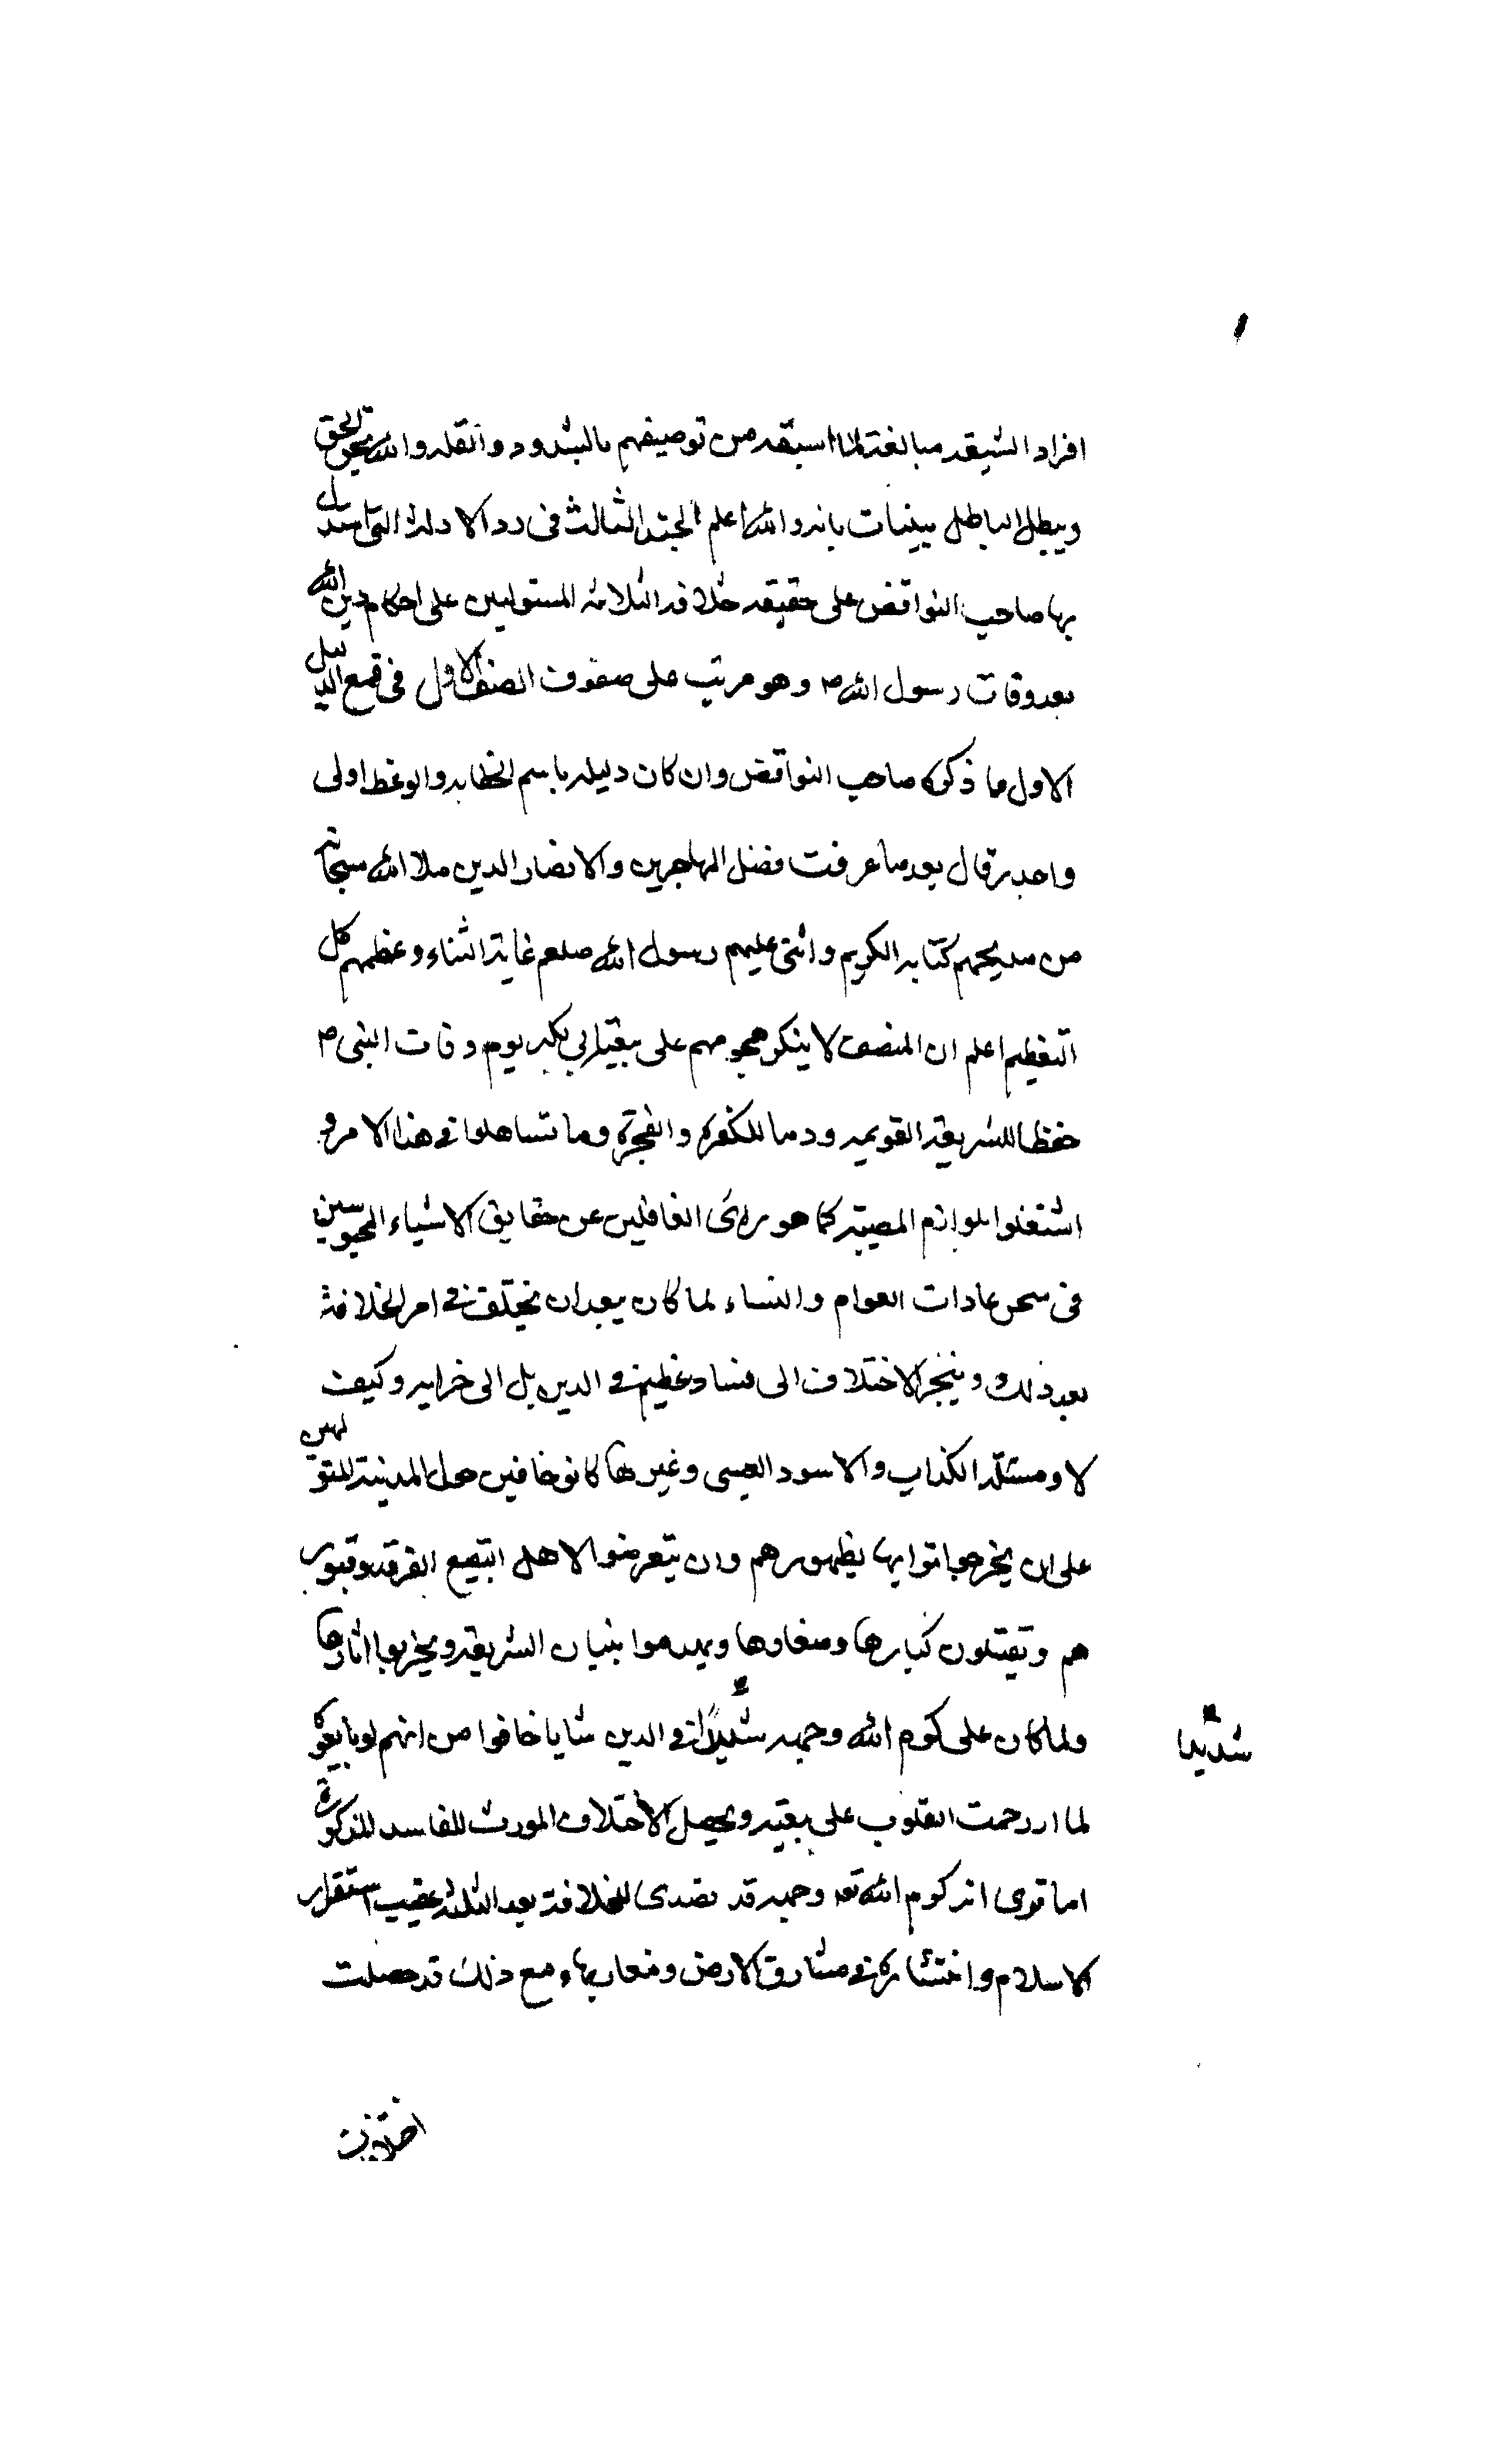 افراد الشيعه مبالغة لما اسبقه من توصيفهم بالشدود والقله والله يحق الحق
ويبطل الباطل ببينات بانه والله اعلم الجند الثالث فى رد الادلة التى استدل
بها صاحب النواقض على حقيقه خلافه الثلاثه المستولين على احكام دين الله
بعد وفات رسول الله ص وهو مرتب على صفوف الصف الاول فى قمع الدليل
الاول مما ذكره صاحب النواقض وان كان دليله باسم الخطابه والوعظ اولى
واجدر قال بعد ما عرفت فضل المهاجرين والانصار الدين ملا الله سبحانه
من مديحهم كتابه الكريم واثنى عليهم رسول الله صلعم غاية الثناء وعظمهم كل
التعظيم اعلم ان المنصف لا ينكر هجومهم على بيعة ابي بكر يوم وفات النبى ص
حفظا للشريعة القويمه ودما للكفره والفجرة وما تساهلوا في هذا الامر و
اشتغلوا بلوازم المصيبة كما هو راى الغافلين عن حقايق الاشياء المحبوسين
فى سجن عادات العوام والنساء لما كان يبعد ان يختلف في امر الخلافة
بعد ذلك وينجر الاختلاف الى فساد عظيم في الدين بل الى خرابه وكيف
لا ومسيلمة الكذاب والاسود العبسى وغيرها كانو خافين حول المدينة للتو متوقعين
على ان يخرجوا توابها بظهورهم وان يتعرضوا لاهل البقيع الغرقد وقبور
هم وتقتلون كبارها وصغارها ويهدموا بنيان الشريعة ويخربوا اثارها
ولما كان على كرم الله وجهه شديدا في الدين شابا خافوا من انهم لو بايعوه
شديدا
لما ازدحمت القلوب على بيعته ويحصل الاختلاف المورث للفاسد المذكورة
اما ترى انه كرم الله تعه وجهه قد تصدى للخلافة بعد الثلثة عقيب استقرار
الاسلام وانتشاره في مشارق الارض ومغاربها ومع ذلك قد حصلت
اختلافات